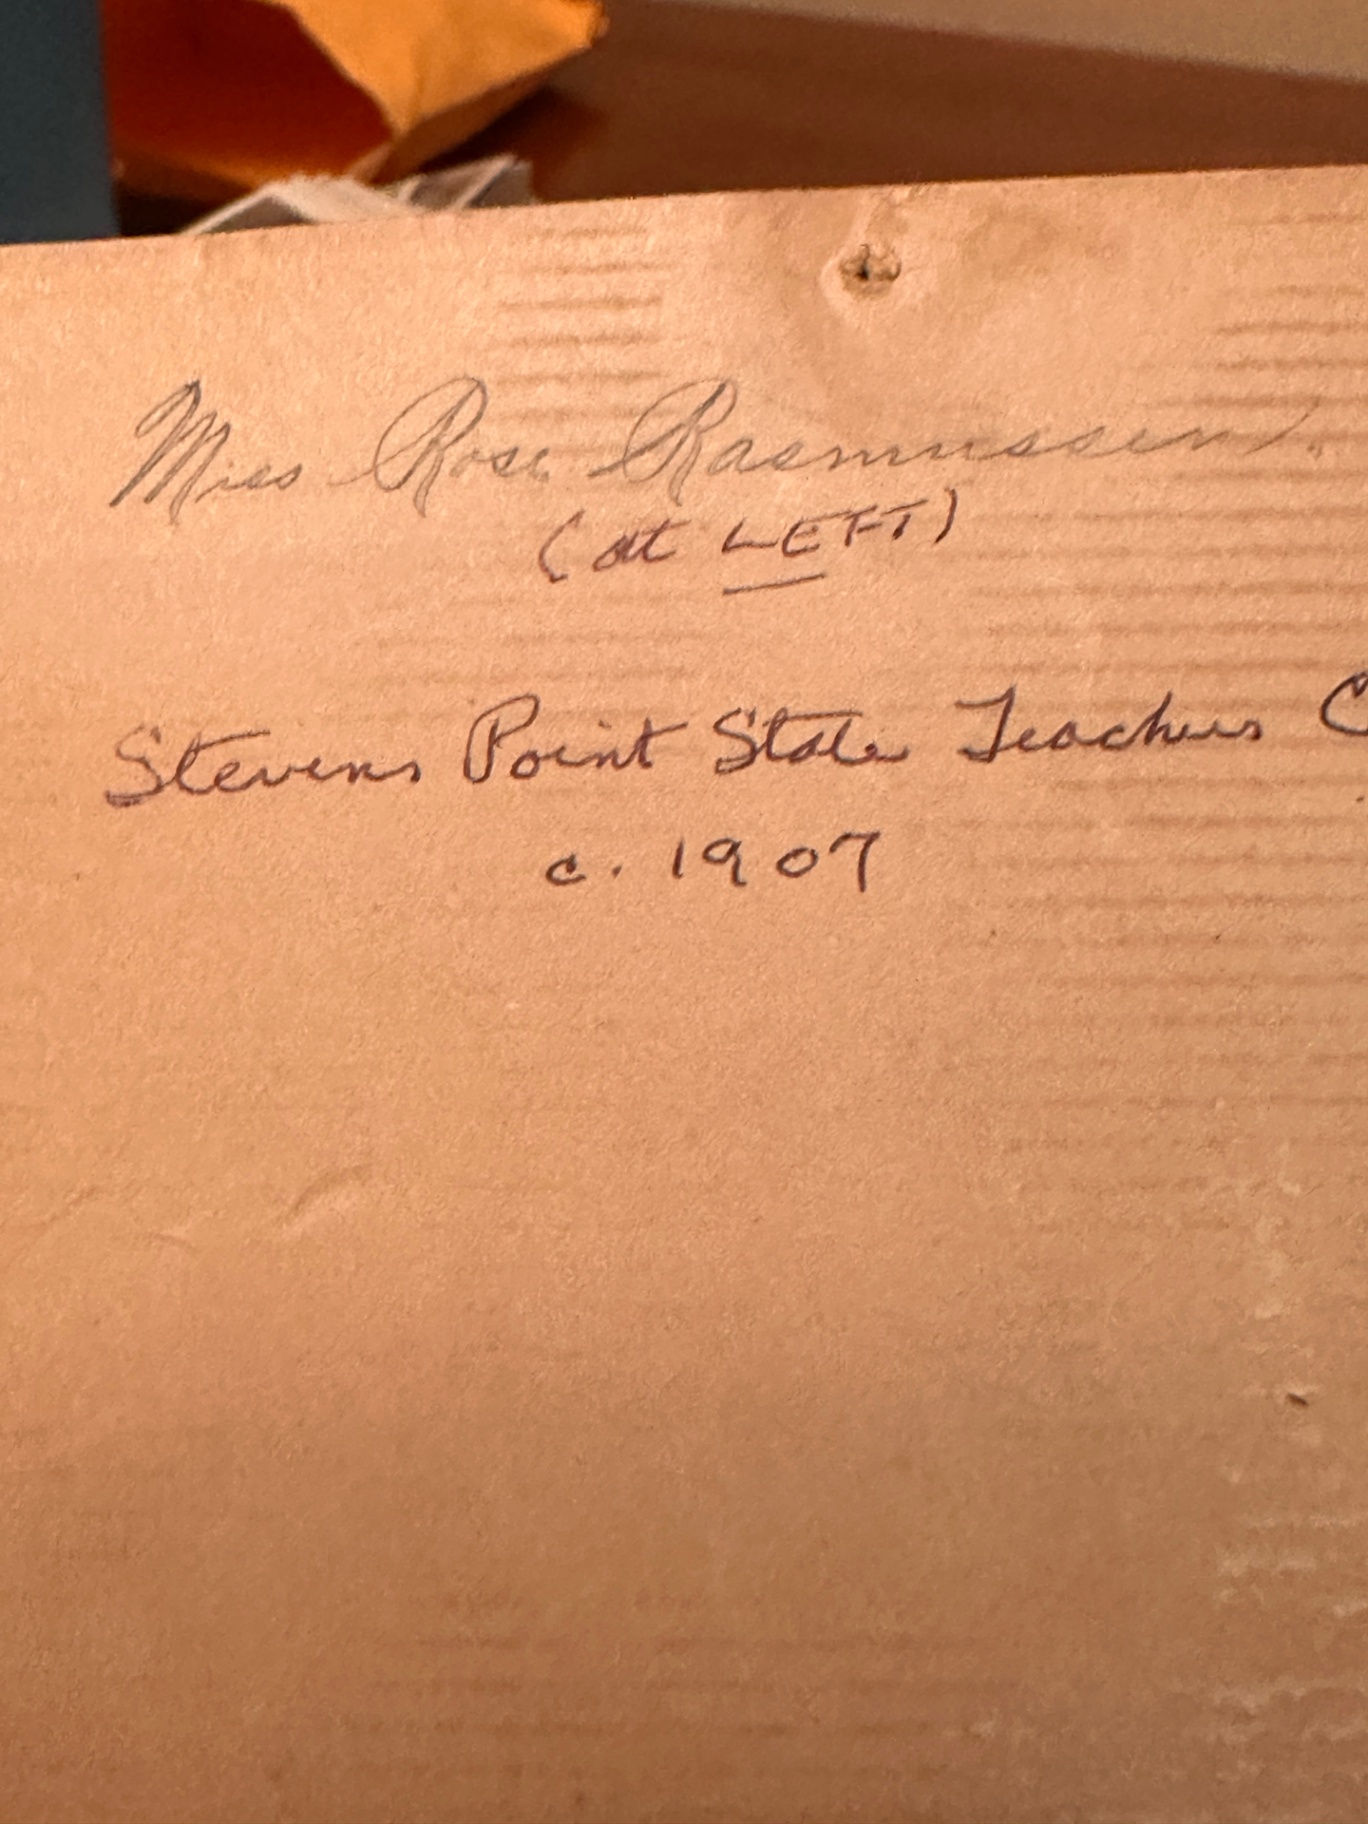 Miss Rose Rasmussen.
(at LEFT)
Stevens Point State Teachers C
c. 1907